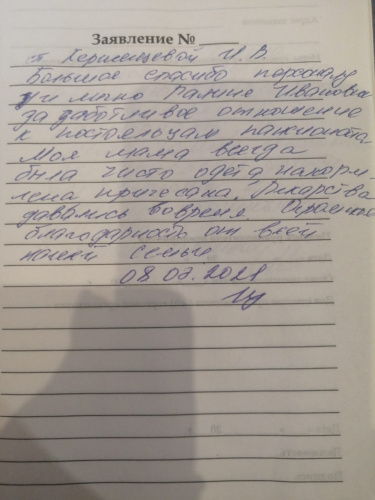 Заявление №
Большое спасибо персоналу
и лично Галине Ивановне
за заботливое отношение
к постояльцам пансионата.
Моя мама всегда
была чисто одета накорм-
лена причесана. Лекарства
давались вовремя. Огромная
благодарность от всей
нашей семьи